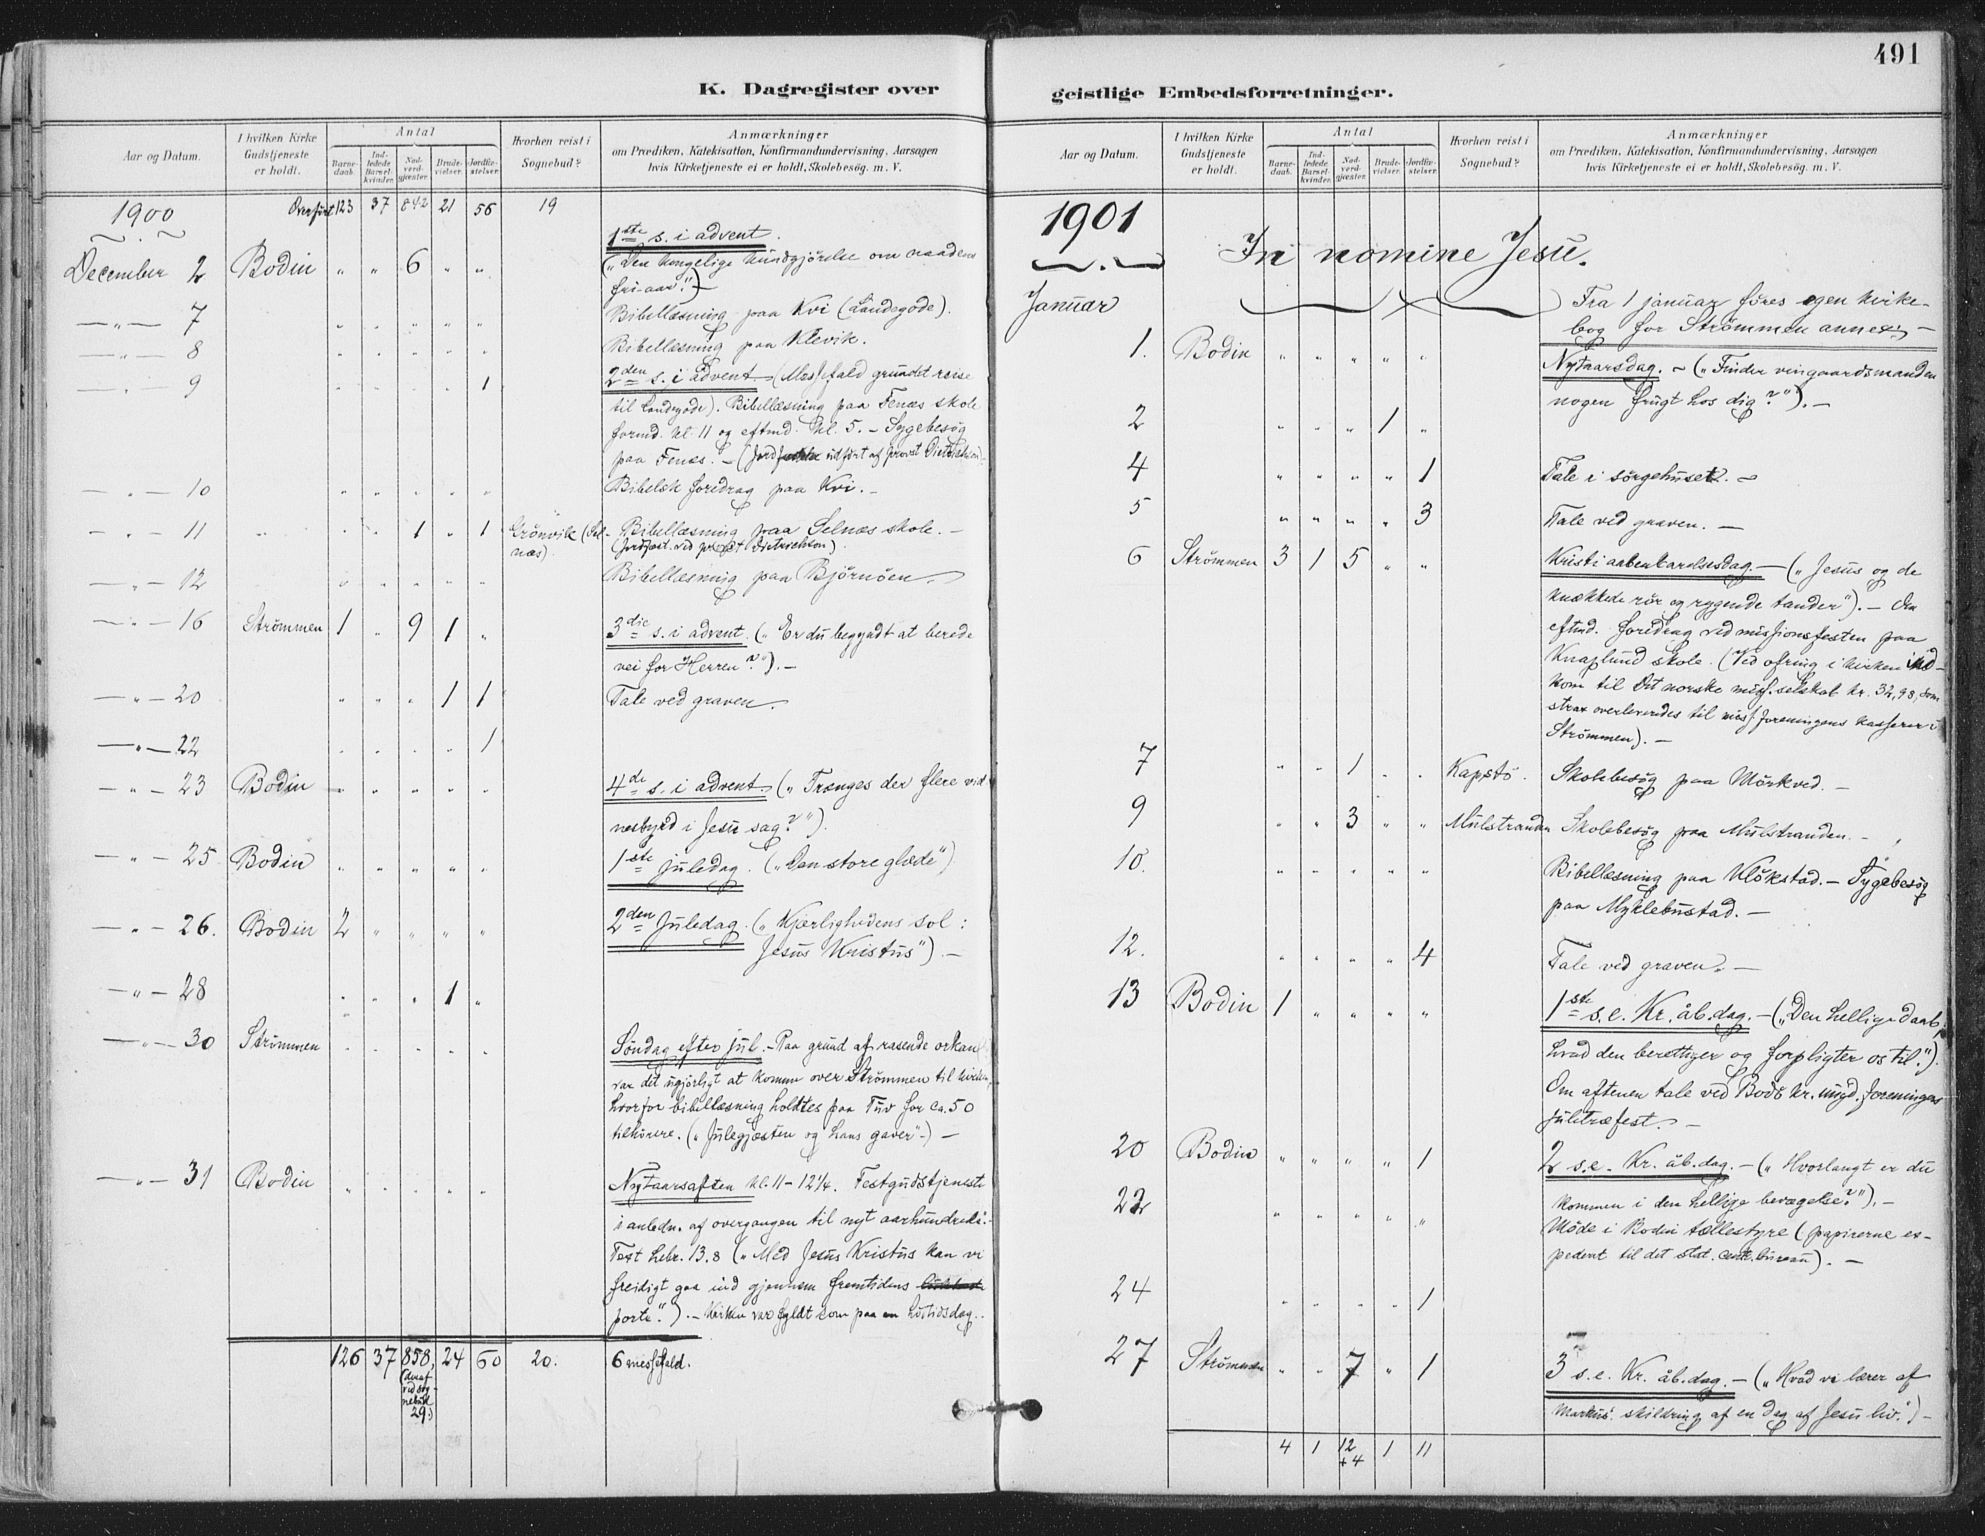 491
K. Dagregister over
Aar og Datum.
I hvilken Kirke
Gudstjeneste
er holdt.
Antal
Barne-
daab.
Ind-
ledede
Barsel-
kvinder.
Nad-
verd-
gjæster.
Brude-
vielser.
Jordfæ-
stelser.
Hvorhen reist i
Sognebud?
Anmærkninger
om Prædiken, Katekisation, Konfirmandundervisning, Aarsagen
hvis Kirketjeneste ei er holdt, Skolebesög. m. V.
1900 Overført 123 37 842 21 56 19
1ste s. i advent.
December 2 Bodin " " 6 " "
("Den kongelige kundgjørelse om naadens
fri-aar".)
—"— 7 " " " " " Bibellæsning paa Kvi (Landegode).
—"— 8 " " " " " Bibellæsning paa Klevik.
" 9 " " " " 1 2den s. i advent. (Messefald grundet reise
til Landegode). Bibellæsning paa Fenæs skole
formd. kl. 11 og eftmd. kl. 5. – Sygebesøg
paa Fenæs. – (Jordfæstelse udført af provst Dietrichson).
—"— 10 " " " " " Bibelsk foredrag paa Kvi. –
—"— 11 " " " 1 " 1 Grönvik (Sel-
næs). Bibellæsning paa Selnæs skole. –
(Jordfæst. ved provst Dietrichson).
—"— 12 " " " " " Bibellæsning paa Bjørnöen. –
—"— 16 Strömmen 1 " 9 1 " 3die s. i advent. ("Er du begyndt at berede
vei for Herren?"). –
—"— 20 " " " 1 1 Tale ved graven. –
—"— 22 " " " " 1
—"— 23 Bodin " " " " " 4de s. i advent. ("Trænges der flere vid-
nesbyrd i Jesu sag?").
—"— 25 Bodin " " " " " 1ste juledag. ("Den store glæde").
—"— 26. Bodin 2 " " " " 2den Juledag. ("Kjærlighedens sol:
Jesus Kristus"). –
—"— 28 " " " 1 "
—"— 30 Strömmen " " " " " Söndag efter jul. – Paa grund af rasende orkan
var det ugjørligt at komme over Strømmen til kirken,
hvorfor bibellæsning holdtes paa Tuv for ca. 50
tilhörere. ("Julegjæsten og hans gaver".) –
—"— 31 Bodin " " " " " Nytaarsaften kl. 11–12¼. Festgudstjeneste
i anledn. af overgangen til nyt aarhundrede. –
Text Hebr. 13.8 ("Med Jesus Kristus kan vi
freidigt gaa ind gjennem fremtidens
porte".) – Kirken var fyldt som paa en høitidsdag. –
126 37 858, 24 60 20. 6 messefald.
(deraf
ved sog-
nebud
29.)
geistlige Embedsforretninger.
Aar og Datum.
I hvilken Kirke
Gudstjeneste
er holdt.
Antal
Barne-
daab.
Ind-
ledede
Barsel-
kvinder.
Nad-
verd-
gjæster.
Brude-
vielser.
Jordfæ-
stelser.
Hvorhen reist i
Sognebud?
Anmærkninger
om Prædiken, Katekisation, Konfirmandundervisning, Aarsagen
hvis Kirketjeneste ei er holdt, Skolebesög. m. V.
1901
In nomine Jesu.
Januar
Fra 1 januar føres egen kirke-
bog for Strömmen annex. –
1. Bodin " " " " " Nytaarsdag. – ("Finder vingaardsmanden
nogen frugt hos dig?"). –
2 " " " 1 "
4 " " " " 1 Tale i sörgehuset. –
5 " " " " 3 Tale ved graven. –
6 Strømmen 3 1 5 " " Kristi aabenbarelsesdag. – ("Jesus og de
knækkede rör og rygende tander"). – Om
eftmd. foredrag ved missionsfesten paa
Knaplund skole. (Ved ofring i kirken ind-
kom til Det norske miss. selskab kr. 32,98, som
strax overleveredes til miss. foreningens kasserer i
Strømmen). –
7 " " 1 " " Kapstö. Skolebesøg paa Mörkved. –
9 " " 3 " " Mulstranden Skolebesøg paa Mulstranden. –
10. " " " " " Bibellæsning paa Klökstad. – Sygebesøg
paa Myklebustad. –
12. " " " " 4 Tale ved graven. –
13 Bodin 1 " " " " 1ste s.e. Kr. åb.dag. – ("Den hellige daab,
hvad den berettiger og forpligter os til".)
Om aftenen tale ved Bodö kr. ungd. foreningens
juletræfest. –
20 Bodin " " " " 1 2 s.e. Kr. åb.dag. – ("Hvorlangt er du
kommen i den hellige bevægelse?"). –
22 " " " " " Möde i Bodin tællestyre (papirerne ex-
pedert til det stat. cent. bureau). –
24 " " " " 1
27 Strömmen " " 7 " 1 3 s.e. Kr. åb.dag. – ("Hvad vi lærer af
Markus' skildring af en dag af Jesu liv".) –
4 1 12 1 11
+4